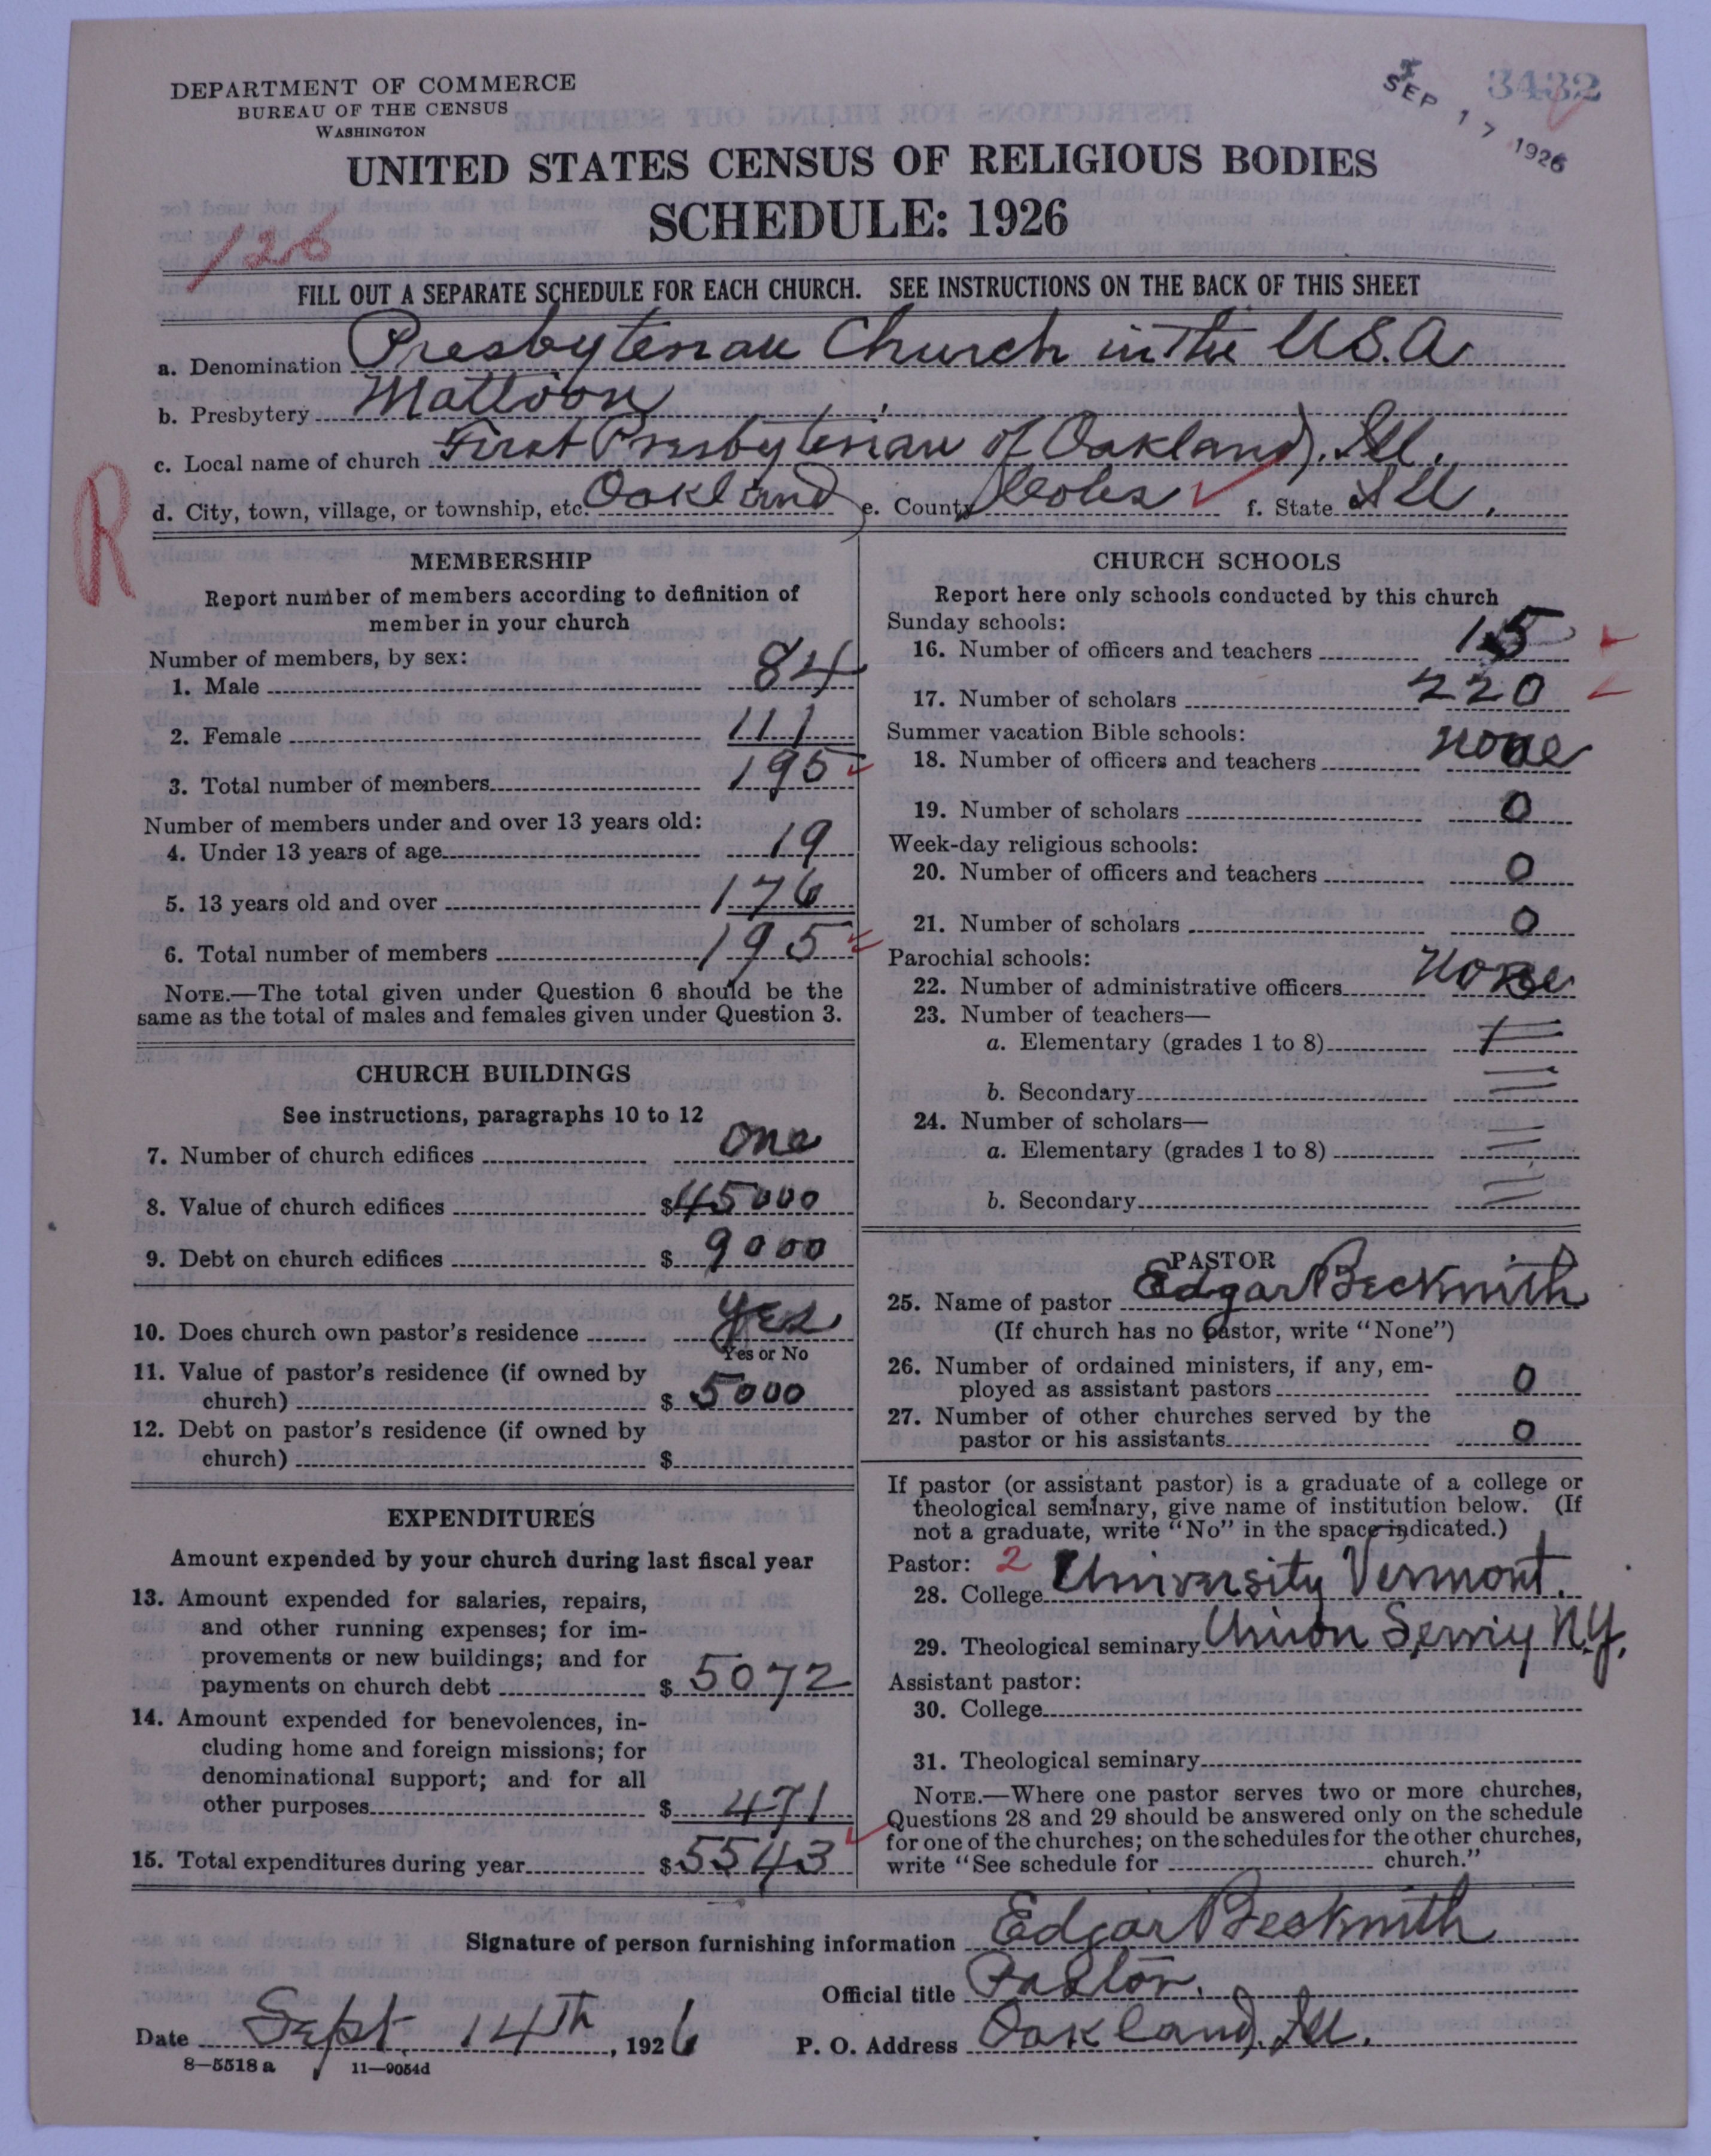 DEPARTMENT OF COMMERCE
BUREAU OF THE CENSUS
WASHINGTON
SEP 17 1926
3432
UNITED STATES CENSUS OF RELIGIOUS BODIES
SCHEDULE: 1926
126
FILL OUT A SEPARATE SCHEDULE FOR EACH CHURCH. SEE INSTRUCTIONS ON THE BACK OF THIS SHEET
a. Denomination Presbyterian Church in the U.S.A
b. Presbytery Mattoon
c. Local name of church First Presbyterian of Oakland, Ill.
R
d. City, town, village, or township, etc. Oakland e. County Coles f. State Ill.
MEMBERSHIP
Report number of members according to definition of
member in your church
Number of members, by sex:
1. Male 84
2. Female 111
3. Total number of members 195
Number of members under and over 13 years old:
4. Under 13 years of age 19
5. 13 years old and over 176
6. Total number of members 195
NOTE.—The total given under Question 6 should be the
same as the total of males and females given under Question 3.
CHURCH BUILDINGS
See instructions, paragraphs 10 to 12
7. Number of church edifices one
8. Value of church edifices $45000
9. Debt on church edifices $ 9000
10. Does church own pastor's residence yes
Yes or No
11. Value of pastor's residence (if owned by
church) $ 5000
12. Debt on pastor's residence (if owned by
church) $
EXPENDITURES
Amount expended by your church during last fiscal year
13. Amount expended for salaries, repairs,
and other running expenses; for im-
provements or new buildings; and for
payments on church debt $ 5072
14. Amount expended for benevolences, in-
cluding home and foreign missions; for
denominational support; and for all
other purposes $ 471
15. Total expenditures during year $ 5543
CHURCH SCHOOLS
Report here only schools conducted by this church
Sunday schools:
16. Number of officers and teachers 15
17. Number of scholars 220
Summer vacation Bible schools:
18. Number of officers and teachers none
19. Number of scholars 0
Week-day religious schools:
20. Number of officers and teachers 0
21. Number of scholars 0
Parochial schools:
22. Number of administrative officers None
23. Number of teachers—
a. Elementary (grades 1 to 8)
b. Secondary
24. Number of scholars—
a. Elementary (grades 1 to 8)
b. Secondary
PASTOR
25. Name of pastor Edgar Beckwith
(If church has no pastor, write "None")
26. Number of ordained ministers, if any, em-
ployed as assistant pastors 0
27. Number of other churches served by the
pastor or his assistants 0
If pastor (or assistant pastor) is a graduate of a college or
theological seminary, give name of institution below. (If
not a graduate, write "No" in the space indicated.)
Pastor: 2
28. College University Vermont.
29. Theological seminary Union Semy N.Y.
Assistant pastor:
30. College
31. Theological seminary
NOTE.—Where one pastor serves two or more churches,
Questions 28 and 29 should be answered only on the schedule
for one of the churches; on the schedules for the other churches,
write "See schedule for church."
Signature of person furnishing information Edgar Beckwith
Official title Pastor.
Date Sept. 14th, 1926 P. O. Address Oakland, Ill.
8—5518 a 11—9054d